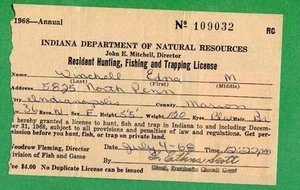 1968—Annual Nº 109032 RC
INDIANA DEPARTMENT OF NATURAL RESOURCES
John E. Mitchell, Director
Resident Hunting, Fishing and Trapping License
Winchell Edna M
(Last) (First) (Middle)
5825 North Penn
Indianapolis Marion
36 W F 5'5" 120 Blue Br
is hereby granted a license to hunt, fish and trap in Indiana to and including Decem-
ber 31, 1968, subject to all provisions and penalties of law and regulations. Get per-
mission before you hunt, fish, or trap on private land.
Woodrow Fleming, Director July 4-68 12:22
Division of Fish and Game
Fee $4.00 No Duplicate License can be issued